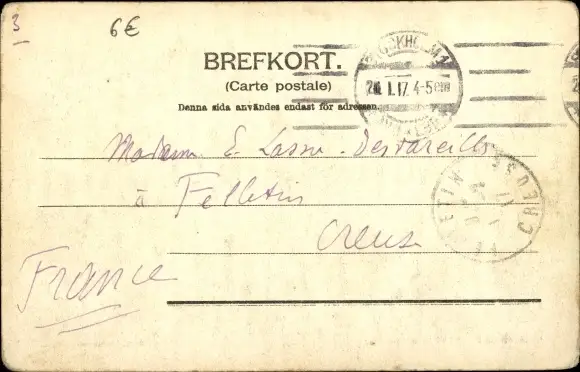 3
6€
BREFKORT.
(Carte postale)
Denna sida användes endast för adressen.
STOCKHOLM 1
24. 1. 17. 4-5 em
Madame E. Lassu-Desvareilles
à Felletin
Creuse
France
CREUSE